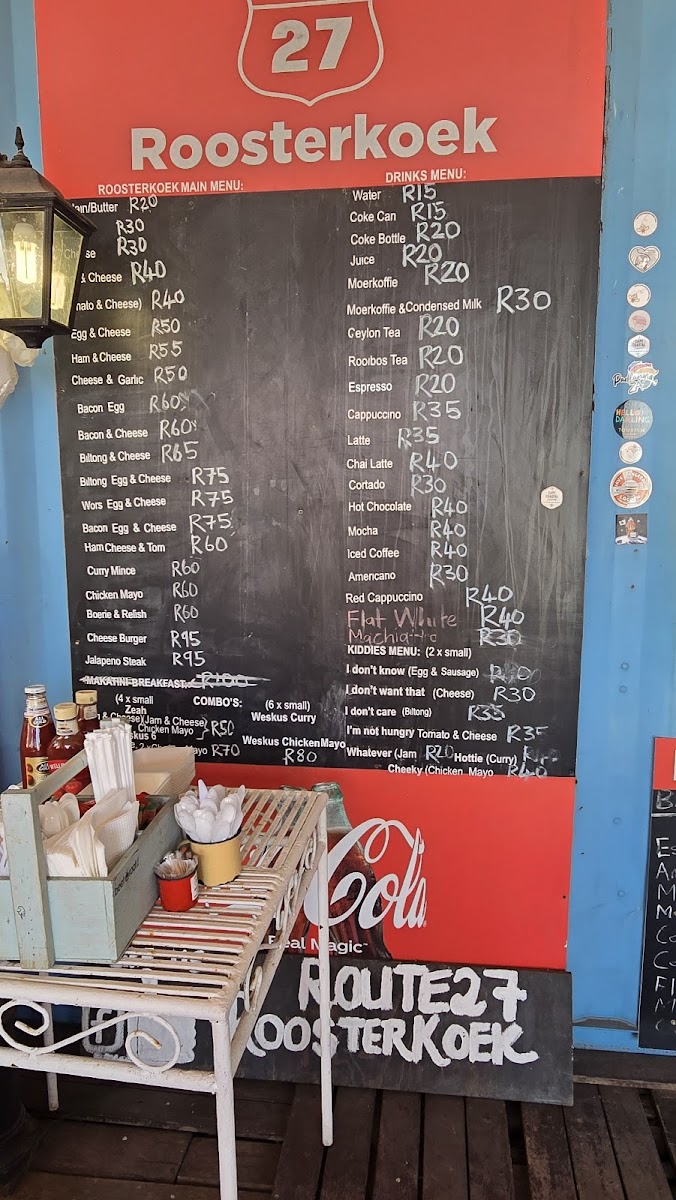 27
Roosterkoek
ROOSTERKOEK MAIN MENU:
/Butter R20
R30
R30
& Cheese R40
& Cheese) R40
Egg & Cheese R50
Ham & Cheese R55
Cheese & Garlic R50
Bacon Egg R60
Bacon & Cheese R60
Biltong & Cheese R65
Biltong Egg & Cheese R75
Wors Egg & Cheese R75
Bacon Egg & Cheese R75
Ham Cheese & Tom R60
Curry Mince R60
Chicken Mayo R60
Boerie & Relish R60
Cheese Burger R95
Jalapeno Steak R95
MAKATINI BREAKFAST R100
COMBO'S:
(4 x small
Zeah
& Cheese)(Jam & Cheese)
Chicken Mayo R50
Mayo R70
(6 x small)
Weskus Curry
Weskus Chicken Mayo
R80
DRINKS MENU:
Water R15
Coke Can R15
Coke Bottle R20
Juice R20
Moerkoffie R20
Moerkoffie & Condensed Milk R30
Ceylon Tea R20
Rooibos Tea R20
Espresso R20
Cappuccino R35
Latte R35
Chai Latte R40
Cortado R30
Hot Chocolate R40
Mocha R40
Iced Coffee R40
Americano R30
Red Cappuccino R40
Flat White R40
R30
KIDDIES MENU: (2 x small)
I don't know (Egg & Sausage)
I don't want that (Cheese) R30
I don't care (Biltong) R35
I'm not hungry Tomato & Cheese R35
Whatever (Jam R20 Hottie (Curry)
Cheeky (Chicken Mayo R40
HELLO DARLING
Cola
Real Magic
ROUTE27
ROOSTERKOEK